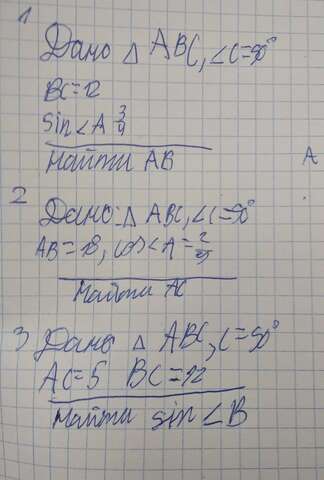 1
Дано △ ABC, ∠C=90°
BC=12
sin∠A 3/4
Найти AB
A
2
Дано △ ABC, ∠C=90°
AB=18, cos∠A=2/9
Найти AC
3 Дано △ ABC, C=90°
AC=5 BC=12
Найти sin∠B